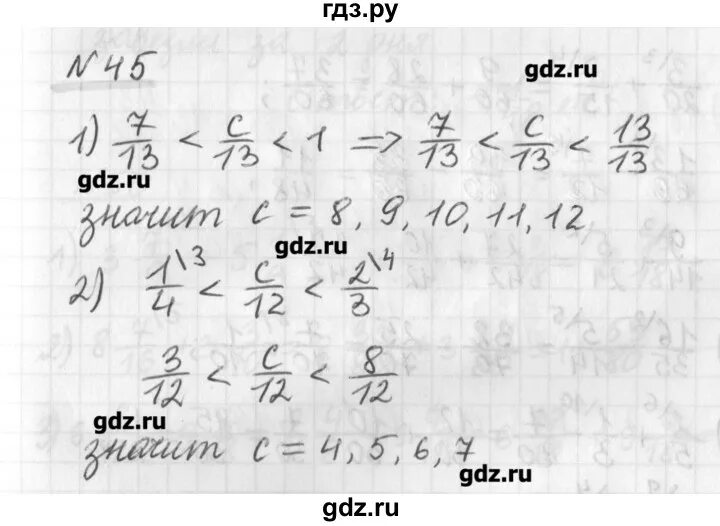 гдз.ру
№ 45
gdz.ru
1) 7/13 < c/13 < 1 => 7/13 < c/13 < 13/13
gdz.ru
значит c = 8, 9, 10, 11, 12
gdz.ru
2) 1\3/4 < c/12 < 2\4/3
3/12 < c/12 < 8/12
gdz.ru
значит c = 4, 5, 6, 7
gdz.ru
gdz.ru